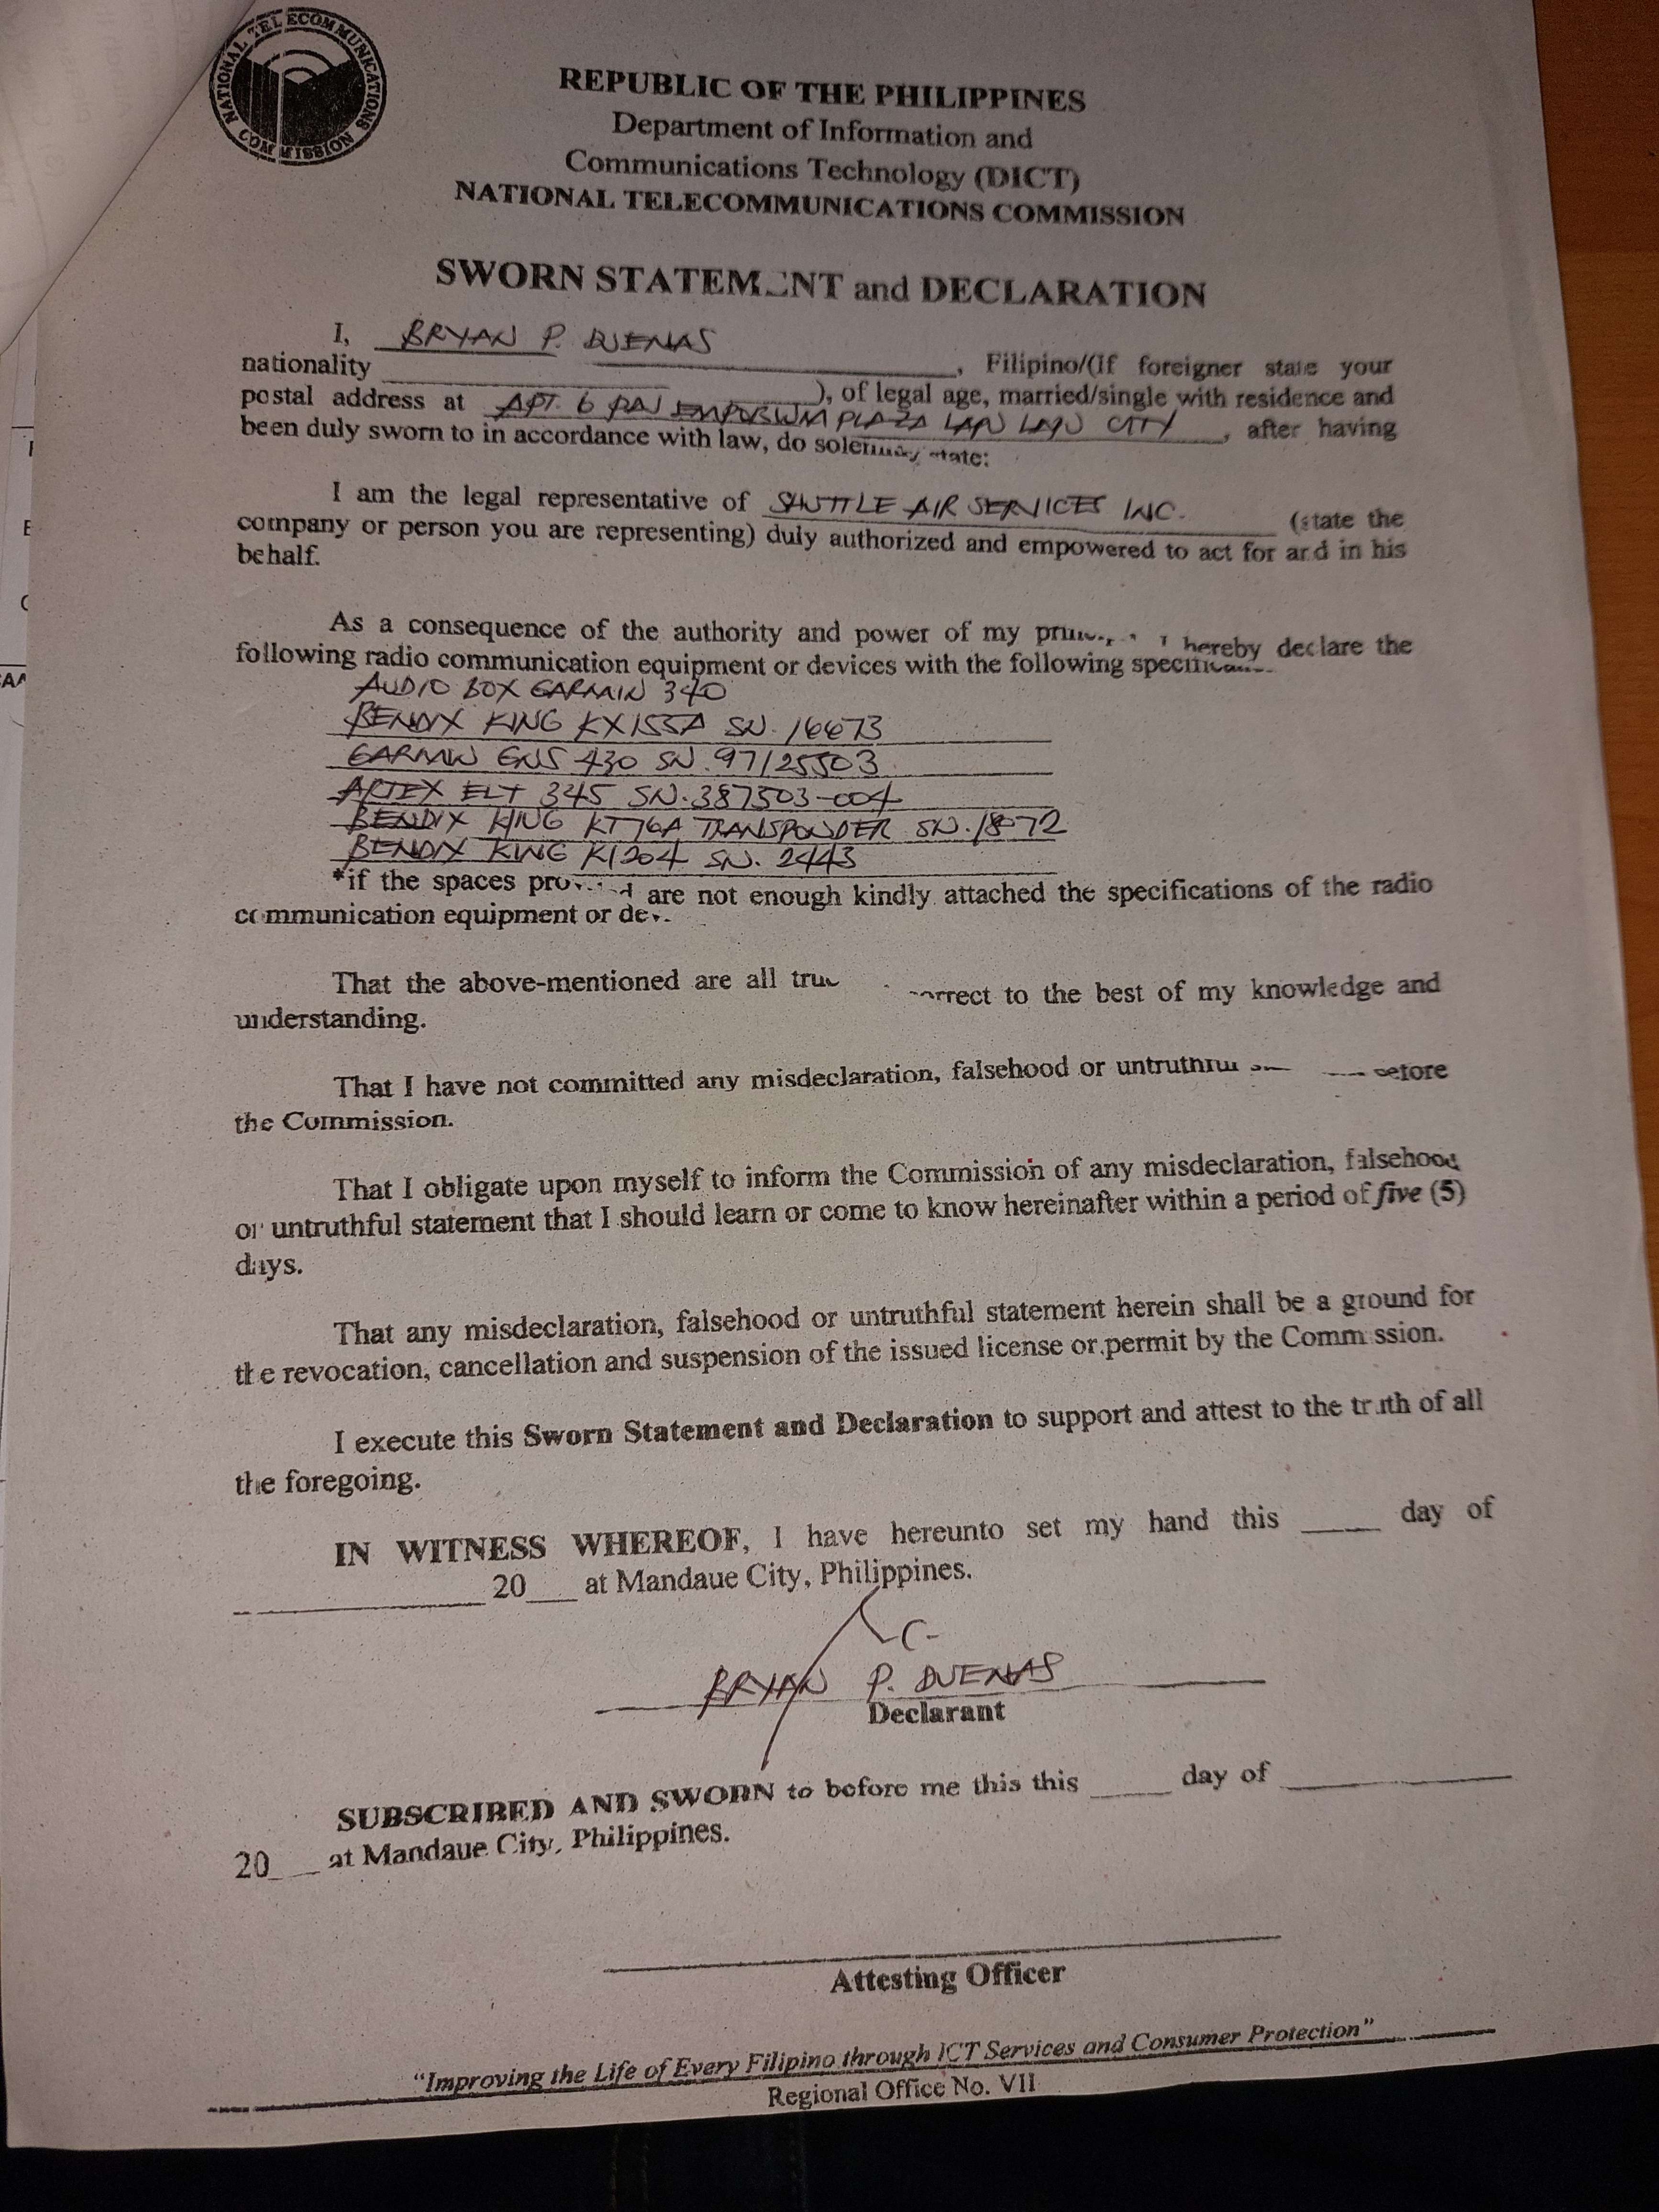 NATIONAL TELECOMMUNICATIONS COMMISSION
REPUBLIC OF THE PHILIPPINES
Department of Information and
Communications Technology (DICT)
NATIONAL TELECOMMUNICATIONS COMMISSION
SWORN STATEMENT and DECLARATION
I, BRYAN P. DUENAS, Filipino/(If foreigner state your
nationality ), of legal age, married/single with residence and
postal address at APT. 6 EMPORIUM PLAZA LAPU LAPU CITY, after having
been duly sworn to in accordance with law, do solemnly state:
I am the legal representative of SHUTTLE AIR SERVICES INC. (state the
company or person you are representing) duly authorized and empowered to act for and in his
behalf.
As a consequence of the authority and power of my I hereby declare the
following radio communication equipment or devices with the following
AUDIO BOX GARMIN 340
BENDIX KING KX155A SN. 16673
GARMIN GNS 430 SN. 97125503
ARTEX ELT 345 SN. 387503-004
BENDIX KING KT76A TRANSPONDER SN. 18072
BENDIX KING KI204 SN. 2443
*if the spaces provided are not enough kindly attached the specifications of the radio
communication equipment or
That the above-mentioned are all true correct to the best of my knowledge and
understanding.
That I have not committed any misdeclaration, falsehood or untruthful before
the Commission.
That I obligate upon myself to inform the Commission of any misdeclaration, falsehood
or untruthful statement that I should learn or come to know hereinafter within a period of five (5)
days.
That any misdeclaration, falsehood or untruthful statement herein shall be a ground for
the revocation, cancellation and suspension of the issued license or permit by the Commission.
I execute this Sworn Statement and Declaration to support and attest to the truth of all
the foregoing.
IN WITNESS WHEREOF, I have hereunto set my hand this ____ day of
____ 20__ at Mandaue City, Philippines.
BRYAN P. DUENAS
Declarant
SUBSCRIBED AND SWORN to before me this this ____ day of ____
20__ at Mandaue City, Philippines.
Attesting Officer
"Improving the Life of Every Filipino through ICT Services and Consumer Protection"
Regional Office No. VII